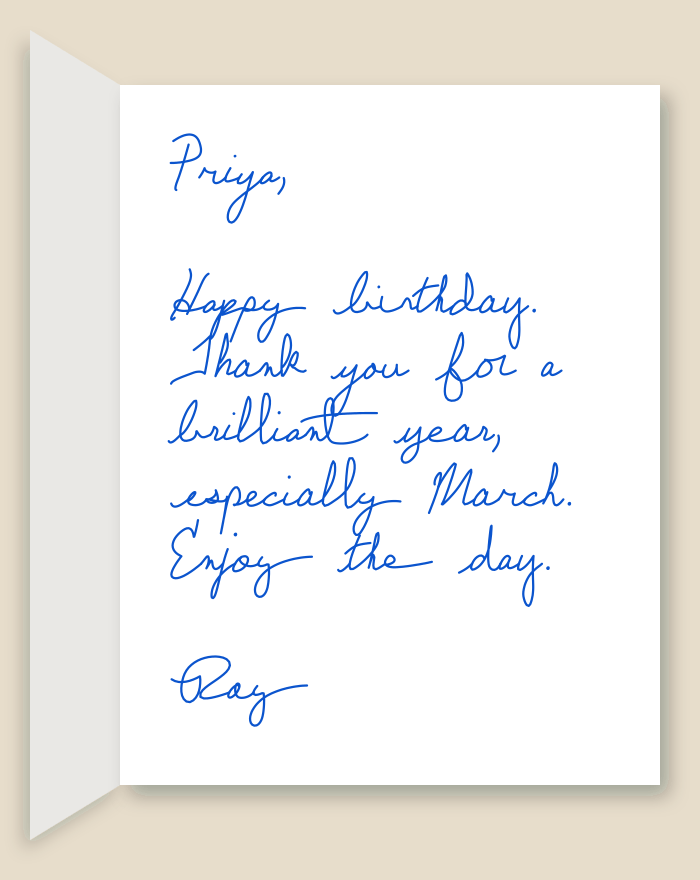 Priya,
Happy birthday.
Thank you for a
brilliant year,
especially March.
Enjoy the day.
Ray